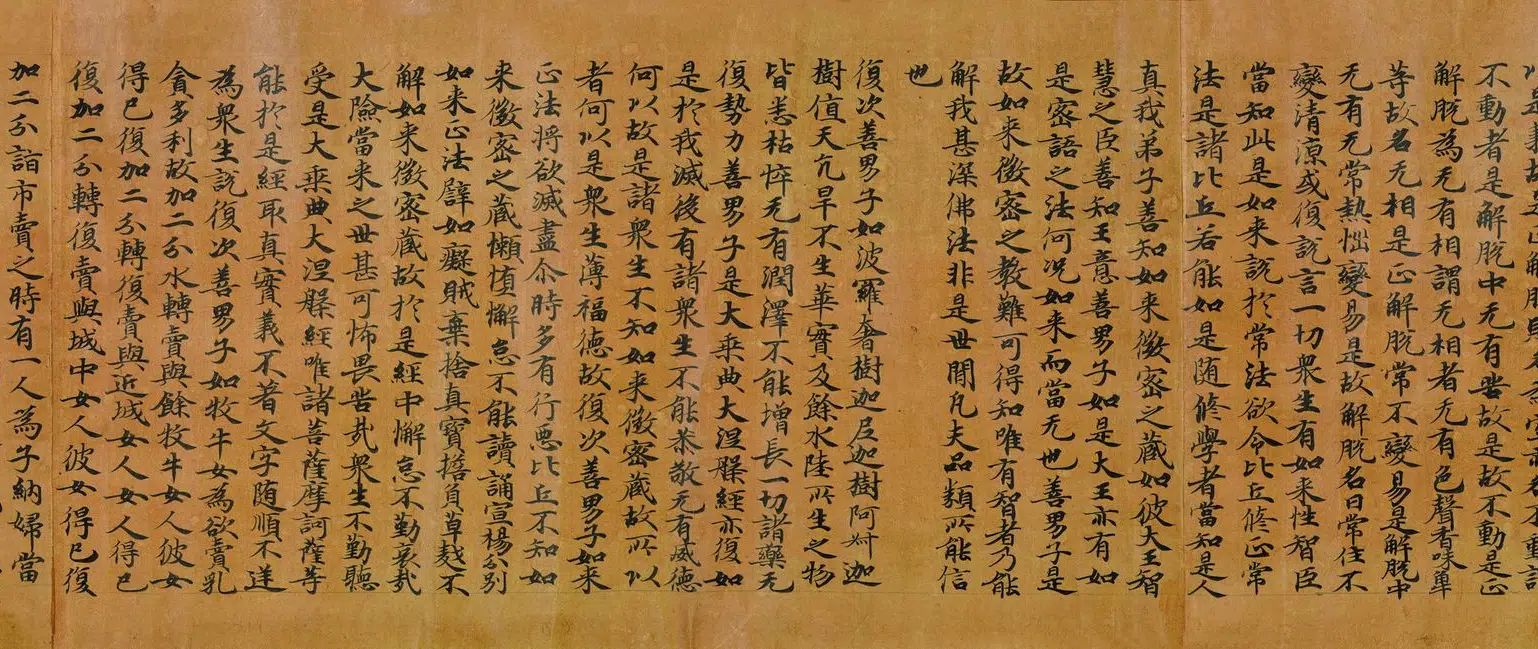 不動者是解脫中无有呰故是故不動是正
解脫為无有相謂无相者无有色聲香味單
等故名无相是正解脫常不變易是解脫中
无有无常熱惱變易是故解脫名曰常住不
變清涼或復說言一切衆生有如来性智臣
當知此是如来說於常法欲令比丘修正常
法是諸比丘若能如是随修學者當知是人
真我弟子善知如来微密之蔵如彼大王智
慧之臣善知王意善男子如是大王亦有如
是密語之法何況如来而當无也善男子是
故如来微密之教難可得知唯有智者乃能
解我甚深佛法非是世間凡夫品類所能信
也
復次善男子如波羅奢樹迦尼迦樹阿𦨕迦
樹值天亢旱不生華實及餘水陸所生之物
皆悉枯悴无有潤澤不能增長一切諸藥无
復勢力善男子是大乘典大涅槃經亦復如
是於我滅後有諸衆生不能恭敬无有威德
何以故是諸衆生不知如来微密蔵故所以
者何以是衆生薄福德故復次善男子如来
正法将欲滅盡尒時多有行惡比丘不知如
来微密之蔵懶惰懈怠不能讀誦宣楊分別
如来正法譬如癡賊棄捨真寳擔負草𪍿不
解如来微密蔵故於是經中懈怠不勤哀㢤
大險當来之世甚可怖畏苦㢤衆生不勤聽
受是大乘典大涅槃經唯諸菩薩摩訶薩等
能於是經取真實義不著文字随順不逆
為衆生說復次善男子如牧牛女為欲賣乳
貪多利故加二分水轉賣與餘牧牛女人彼女
得已復加二分轉復賣與近城女人女人得已
復加二分轉復賣與城中女人彼女得已復
加二分詣市賣之時有一人為子納婦當